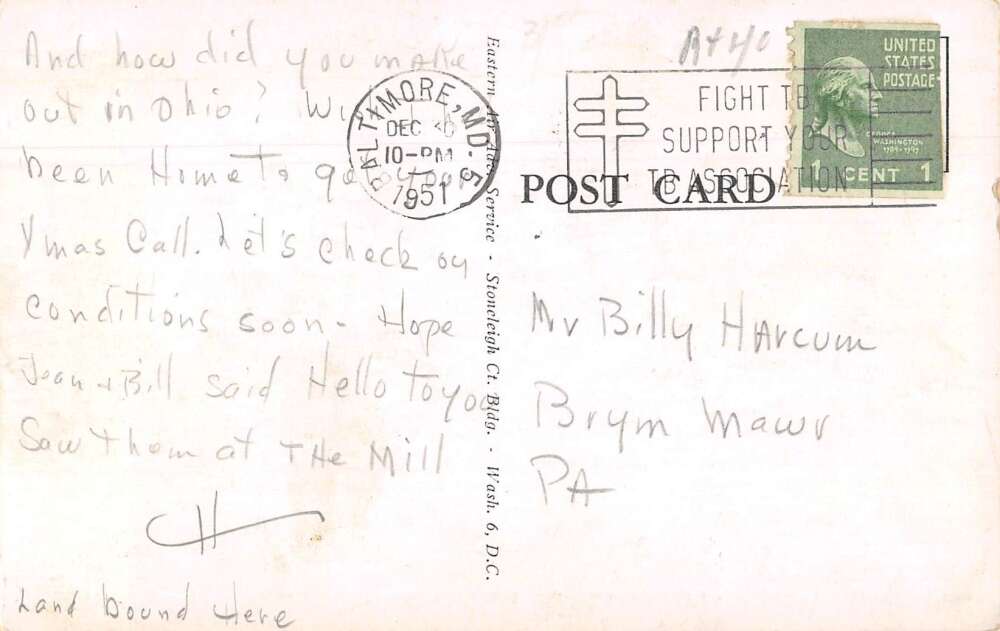 And how did you make
out in Ohio?
been Home to
Xmas Call. Let's check on
conditions soon - Hope
Jean + Bill said Hello to you
Saw them at THE Mill
H
Land bound Here
Eastern Air Service · Stoneleigh Ct. Bldg. · Wash. 6, D.C.
BALTIMORE, MD. 5
DEC
10-PM
1951
FIGHT TB
SUPPORT YOUR
TB ASSOCIATION
UNITED
STATES
POSTAGE
GEORGE
WASHINGTON
1789-1797
1 CENT 1
POST CARD
Mr Billy Harcum
Brym Mawr
PA